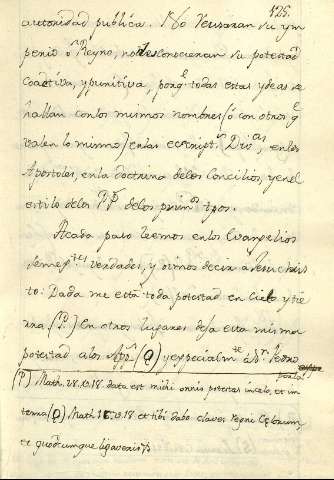 125.
autoridad publica. No reusaran su ym
perio o Reyno, no desconoceran su potestad
coactiva, y punitiva, porq.e todas estas ydeas se
hallan con los mismos nombres (ó con otros q.e
valen lo mismo) en las escript.s Div.as, en los
Apostoles, en la doctrina de los Concilios, y en el
estilo de los PP.s de los prim.os tpos.
Acada paso leemos en los Evangelios
semej.tes verdades, y oimos decir à Jesuchris
to: Dada me està toda potestad en Cielo y tie
rra (P.) En otros lugares deja esta misma
potestad a los App.s (Q) y especialm.te à S.n Pedro
(P) Math. 28. v. 18. data est mihi omnis potestas in celo, et in
terra (Q) Math. 16. v. 18 et tibi dabo claves regni Celorum,
et quodcumque ligaveris &